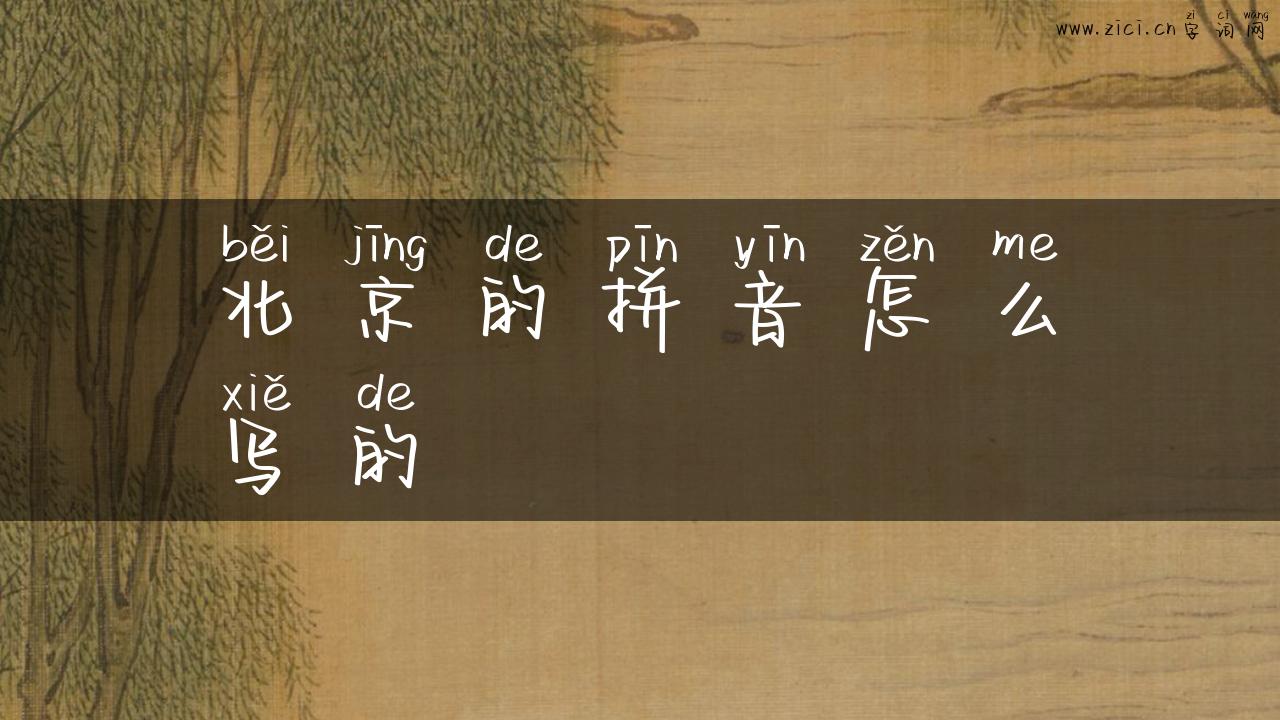 zì cí wǎng
www.zici.cn 字 词 网
běi jīng de pīn yīn zěn me
北 京 的 拼 音 怎 么
xiě de
写 的